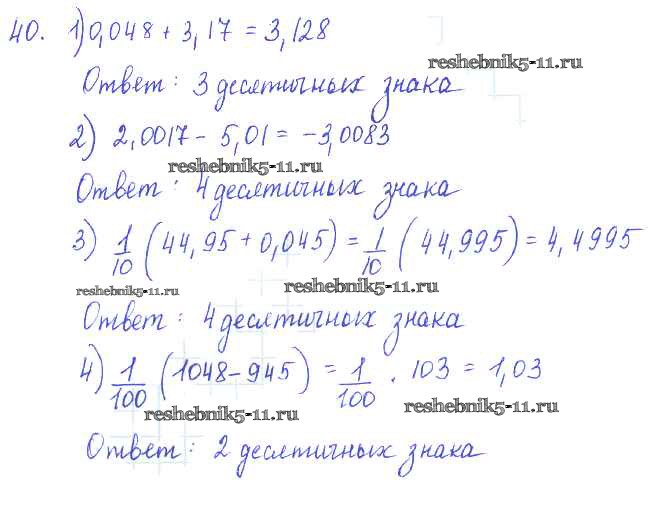 40. 1) 0,048 + 3,17 = 3,128
reshebnik5-11.ru
Ответ: 3 десятичных знака
2) 2,0017 - 5,01 = -3,0083
reshebnik5-11.ru
Ответ: 4 десятичных знака
3) 1/10 (44,95 + 0,045) = 1/10 (44,995) = 4,4995
reshebnik5-11.ru reshebnik5-11.ru
Ответ: 4 десятичных знака
4) 1/100 (1048 - 945) = 1/100 · 103 = 1,03
reshebnik5-11.ru reshebnik5-11.ru
Ответ: 2 десятичных знака